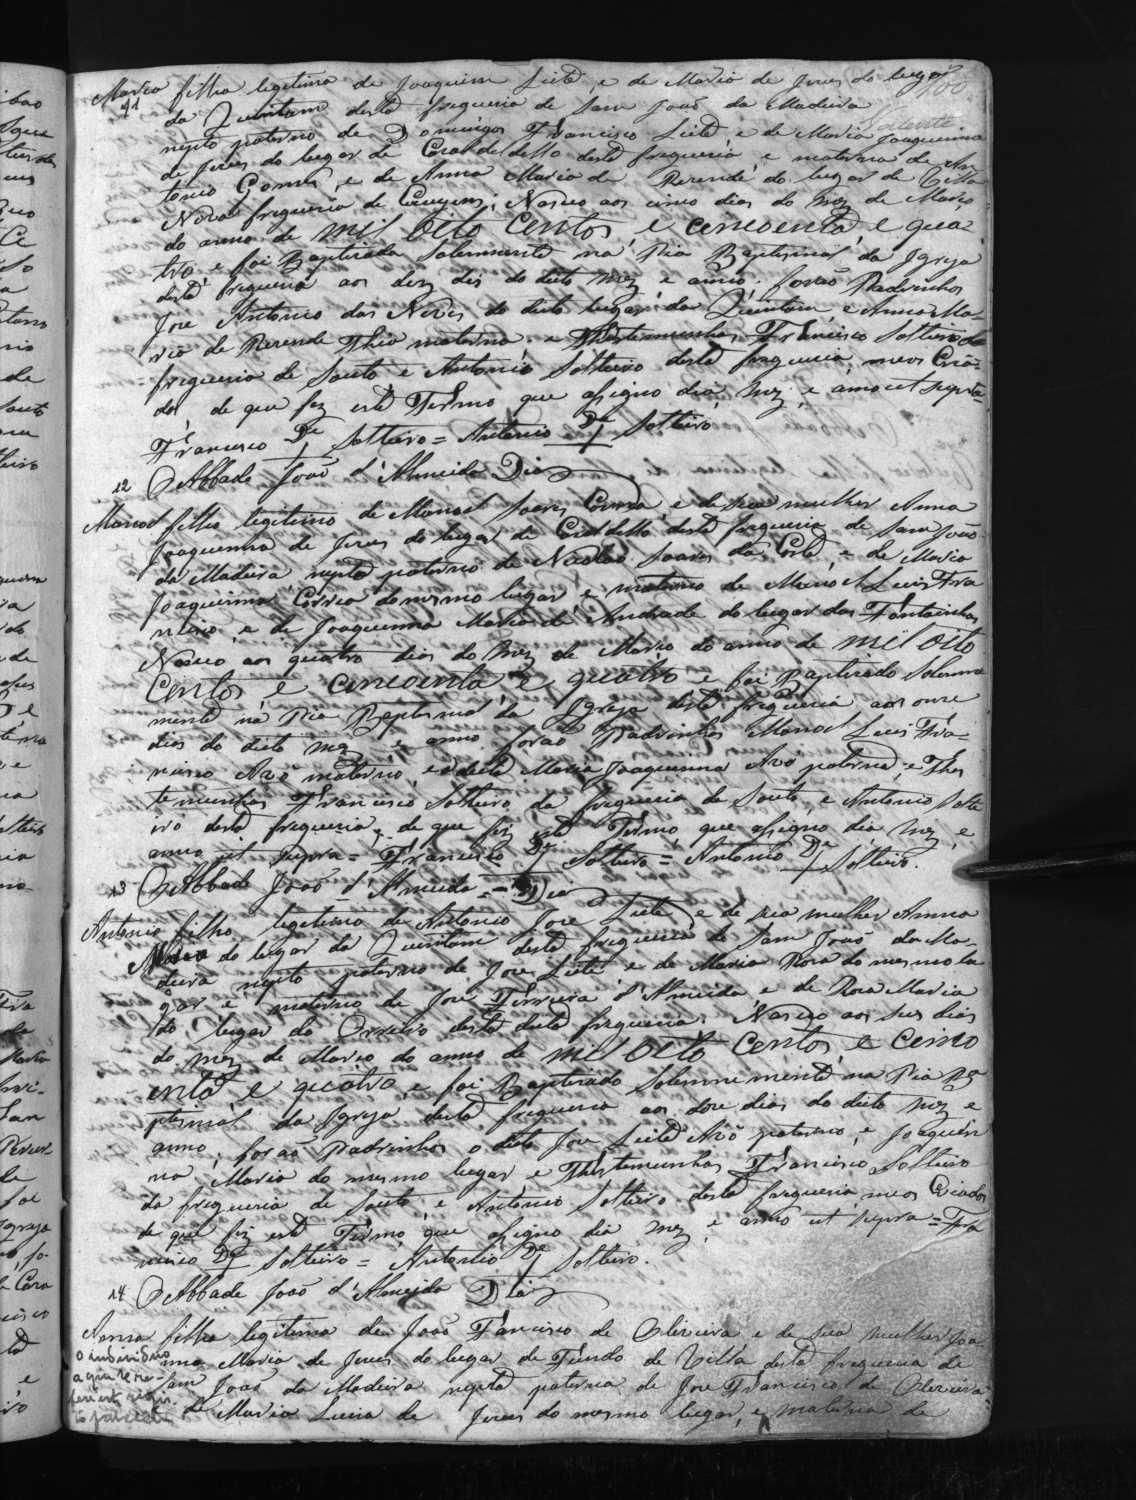 11
Maria filha legitima de Joaquim Leite, e de Maria de Jezus do lugar
da Quintam desta freguezia de Sam João da Madeira
nepta paterna de Domingos Francisco Leite e de Maria Joaquinna
de Jezus do lugar de Casaldello desta freguezia, e materna de An
tonio Gomes, e de Anna Maria de Rezende do lugar de Villa
Nova freguezia de Cucujens; Nasceo aos cinco dias do mez de Março
do anno de mil oito centos, e cincoenta, e qua
tro e foi Baptizada Solemnemente na Pia Baptismal da Igreja
desta freguezia aos dez dias do dito mez e anno, forão Padrinhos
Joze Antonio das Neves do dito lugar da Quintam, e Anna Ma-
ria de Rezende Thia materna, e Thestemunhas Francisco Solteiro da
freguezia de Souto e Antonio Solteiro desta freguezia meos Cria-
dos de que fiz este Termo que assigno dia, mez, e anno ut supra-
Francisco De + Solteiro = Antonio De + Solteiro
O Abbade João d'Almeida Dias
12
Manoel filho legitimo de Manoel Soares Correa e de sua mulher Anna
Joaquinna de Jezus do lugar de Casaldello desta freguezia de Sam João
da Madeira nepto paterno de Nicolao Soares da Costa, e de Maria
Joaquinna Correa do mesmo lugar, e materno de Manoel Luis Fra
ncisco, e de Joaquinna Maria de Andrade do lugar das Fontainhas
Nasceo aos quatro dias do mez de Março do anno de mil oito
centos e cincoenta e quatro e foi Baptizado Solemne
mente na Pia Baptismal da Igreja desta freguezia aos onze
dias do dito mez e anno forão Padrinhos Manoel Luis Fra-
ncisco Avô materno, e a dita Maria Joaquinna Avó paterna, e Thes
temunhas Francisco Solteiro da freguezia de Souto, e Antonio Solte
iro desta freguezia, de que fiz este Termo, que assigno dia mez, e
anno ut supra = Francisco De + Solteiro = Antonio De + Solteiro.
O Abbade João d'Almeida = Dias
13
Antonio filho legitimo de Antonio Joze Leite, e de sua mulher Anna
do lugar da Quintam desta freguezia de Sam João da Ma-
deira nepto paterno de Joze Leite e de Maria Roza do mesmo lu
gar e materno de Joze Ferreira d'Almeida, e de Roza Maria
do lugar do Orreiro desta dita freguezia. Nasceo aos seis dias
do mez de Março do anno de mil oito centos, e cinco
enta e quatro, e foi Baptizado Solemnemente na Pia Ba
ptismal da Igreja desta freguezia aos doze dias do dito mez e
anno, forão Padrinhos o dito Joze Leite Avô paterno, e Joaquin
na Maria do mesmo lugar e Thestemunhas Francisco Solteiro
da freguezia de Souto, e Antonio Solteiro desta freguezia meos Criados
de que fiz este Termo, que assigno dia mez, e anno ut supra = Fra
ncisco De + Solteiro = Antonio De + Solteiro.
O Abbade João d'Almeida Dias
14
Anna filha legitima de João Francisco de Oliveira e de sua mulher Joa
nna Maria de Jezus do lugar de Fundo de Villa desta freguezia de
Sam João da Madeira nepta paterna de Joze Francisco de Oliveira
e de Maria Luiza de Jezus do mesmo lugar, e materna de
O individuo
a que se re-
fere este regis-
to faleceu